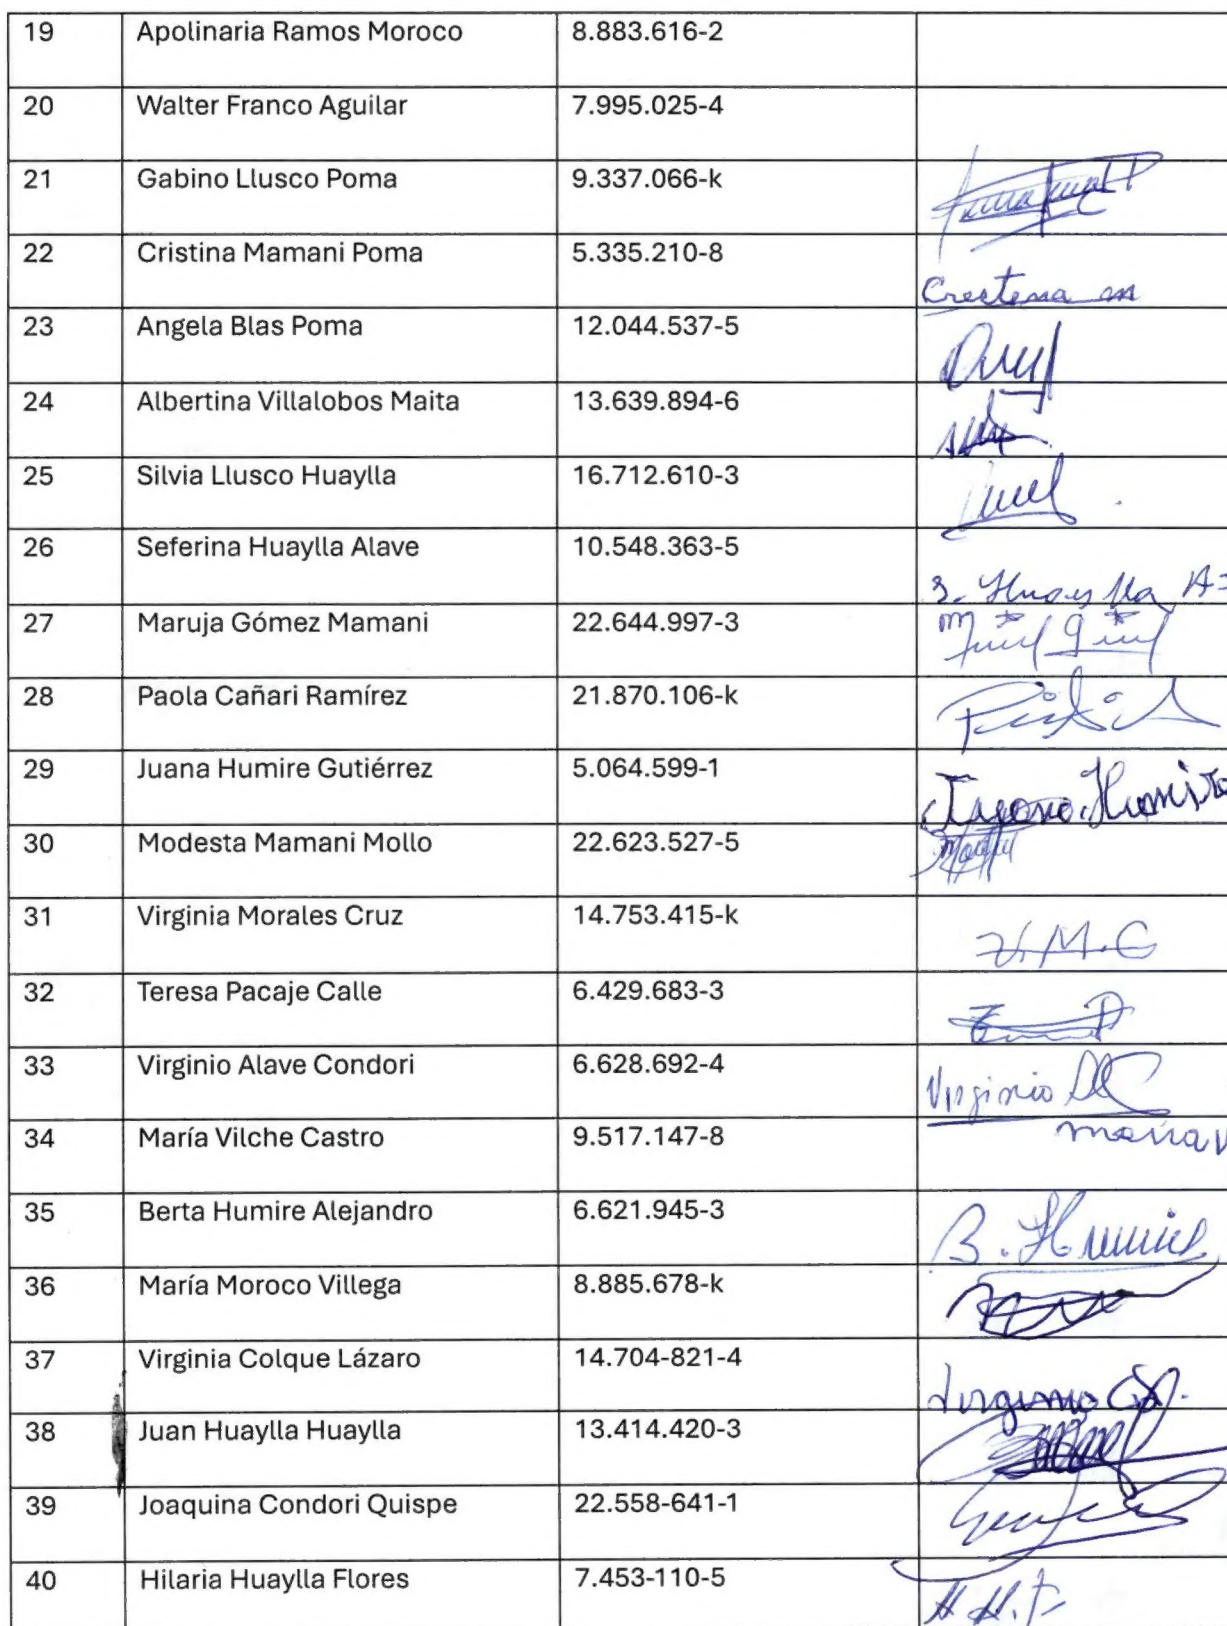 19 Apolinaria Ramos Moroco 8.883.616-2
20 Walter Franco Aguilar 7.995.025-4
21 Gabino Llusco Poma 9.337.066-k
22 Cristina Mamani Poma 5.335.210-8
23 Angela Blas Poma 12.044.537-5
24 Albertina Villalobos Maita 13.639.894-6
25 Silvia Llusco Huaylla 16.712.610-3
26 Seferina Huaylla Alave 10.548.363-5
27 Maruja Gómez Mamani 22.644.997-3
28 Paola Cañari Ramírez 21.870.106-k
29 Juana Humire Gutiérrez 5.064.599-1
30 Modesta Mamani Mollo 22.623.527-5
31 Virginia Morales Cruz 14.753.415-k V.M.C
32 Teresa Pacaje Calle 6.429.683-3
33 Virginio Alave Condori 6.628.692-4 Virginio
34 María Vilche Castro 9.517.147-8 maria V
35 Berta Humire Alejandro 6.621.945-3 B. Humire
36 María Moroco Villega 8.885.678-k
37 Virginia Colque Lázaro 14.704-821-4
38 Juan Huaylla Huaylla 13.414.420-3
39 Joaquina Condori Quispe 22.558-641-1
40 Hilaria Huaylla Flores 7.453-110-5 H.H.F